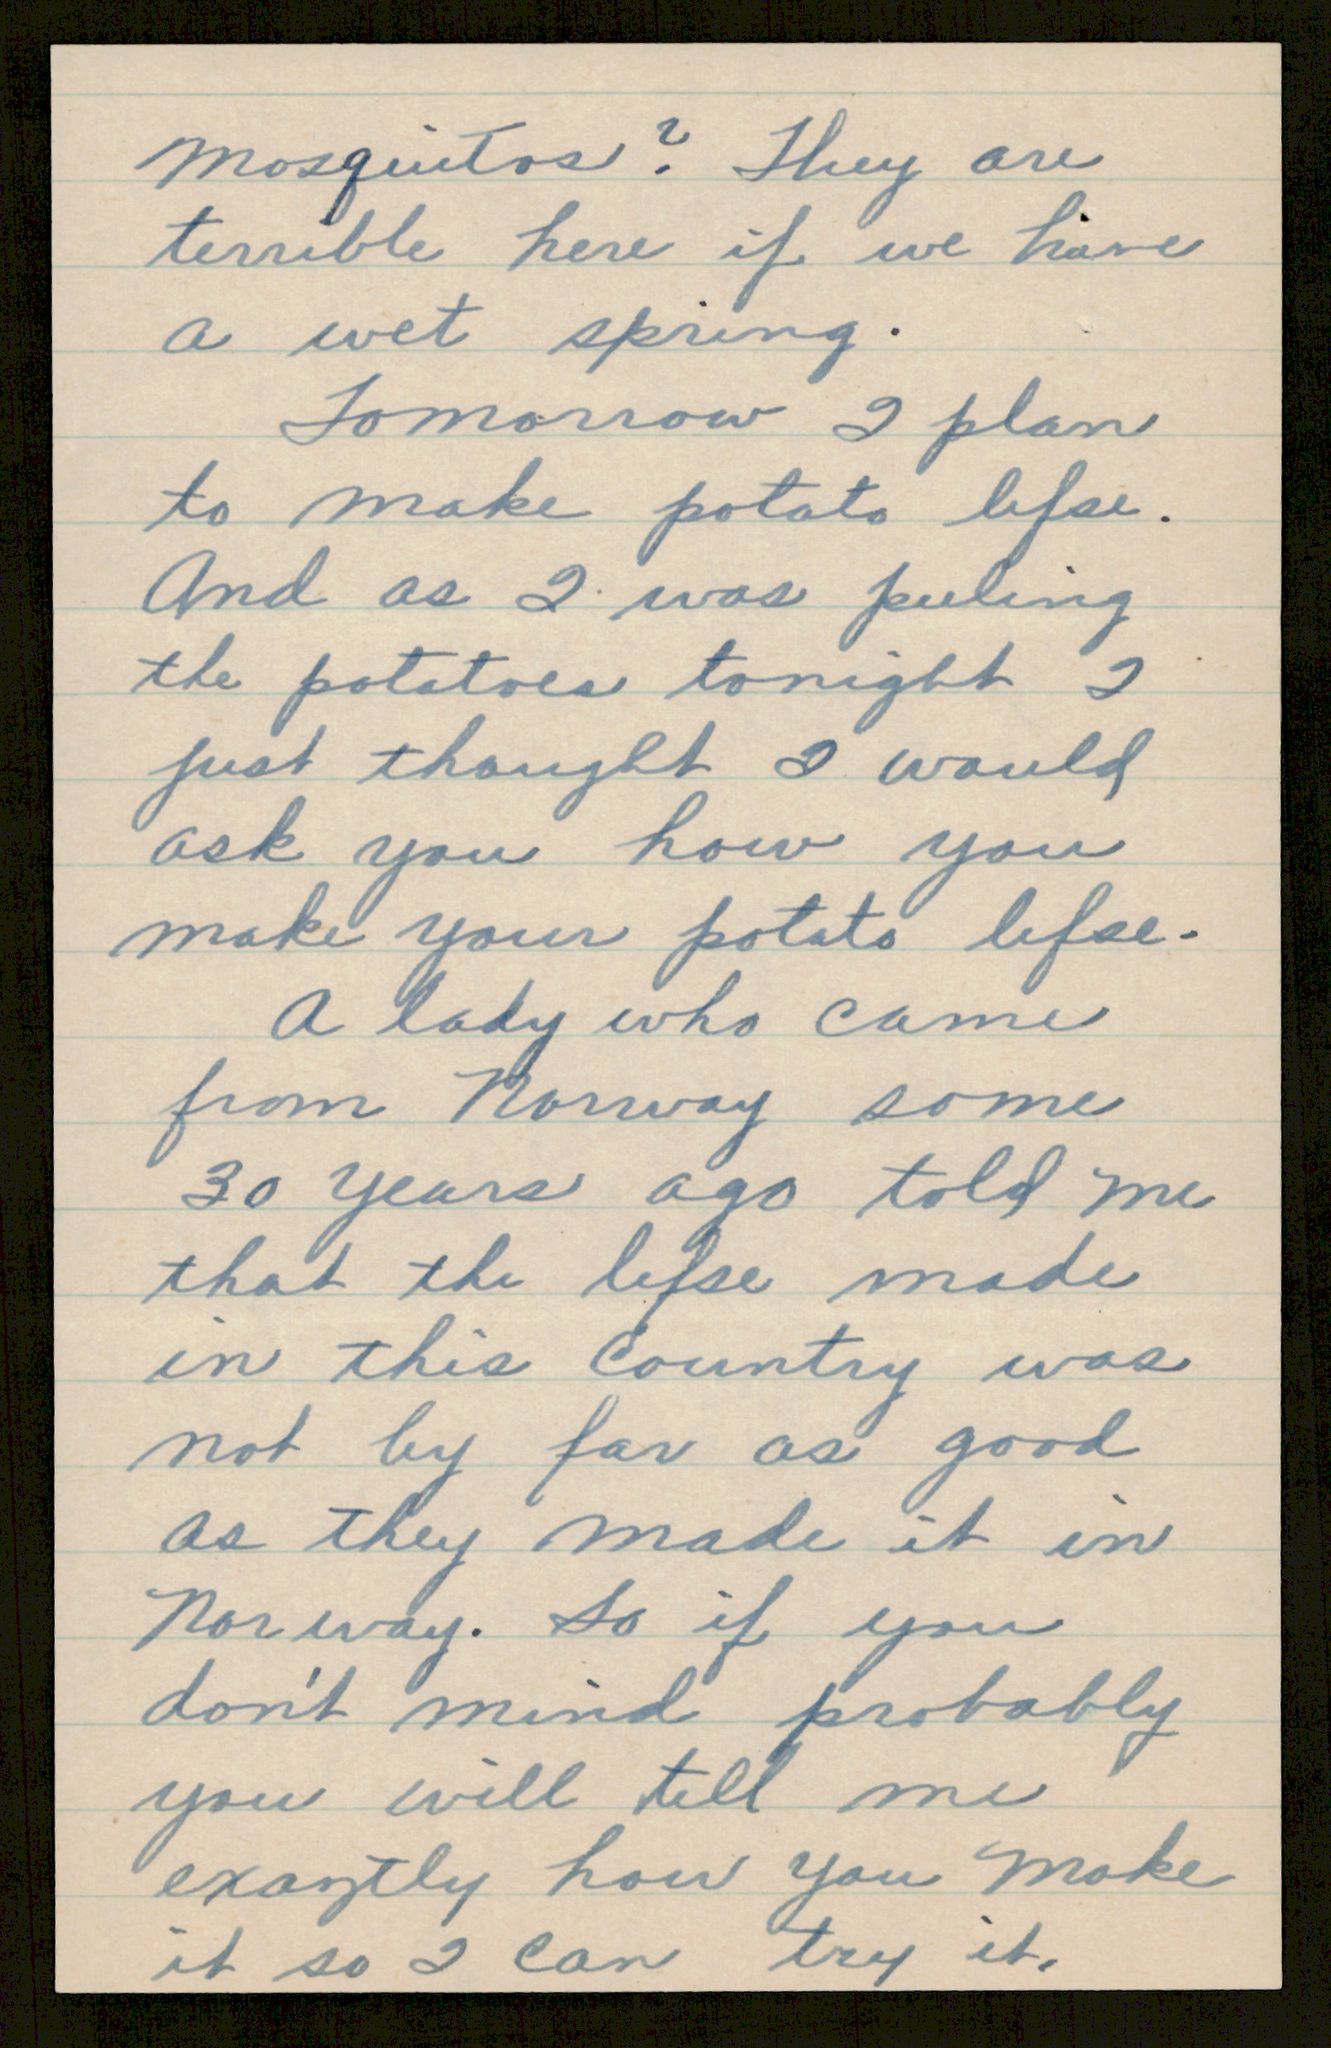 Mosquitos? They are
terrible here if we have
a wet spring.
Tomorrow I plan
to make potato lefse.
And as I was peeling
the potatoes tonight I
just thought I would
ask you how you
make your potato lefse.
A lady who came
from Norway some
30 years ago told me
that the lefse made
in this country was
not by far as good
as they made it in
Norway. So if you
don't mind probably
you will tell me
exactly how you make
it so I can try it.